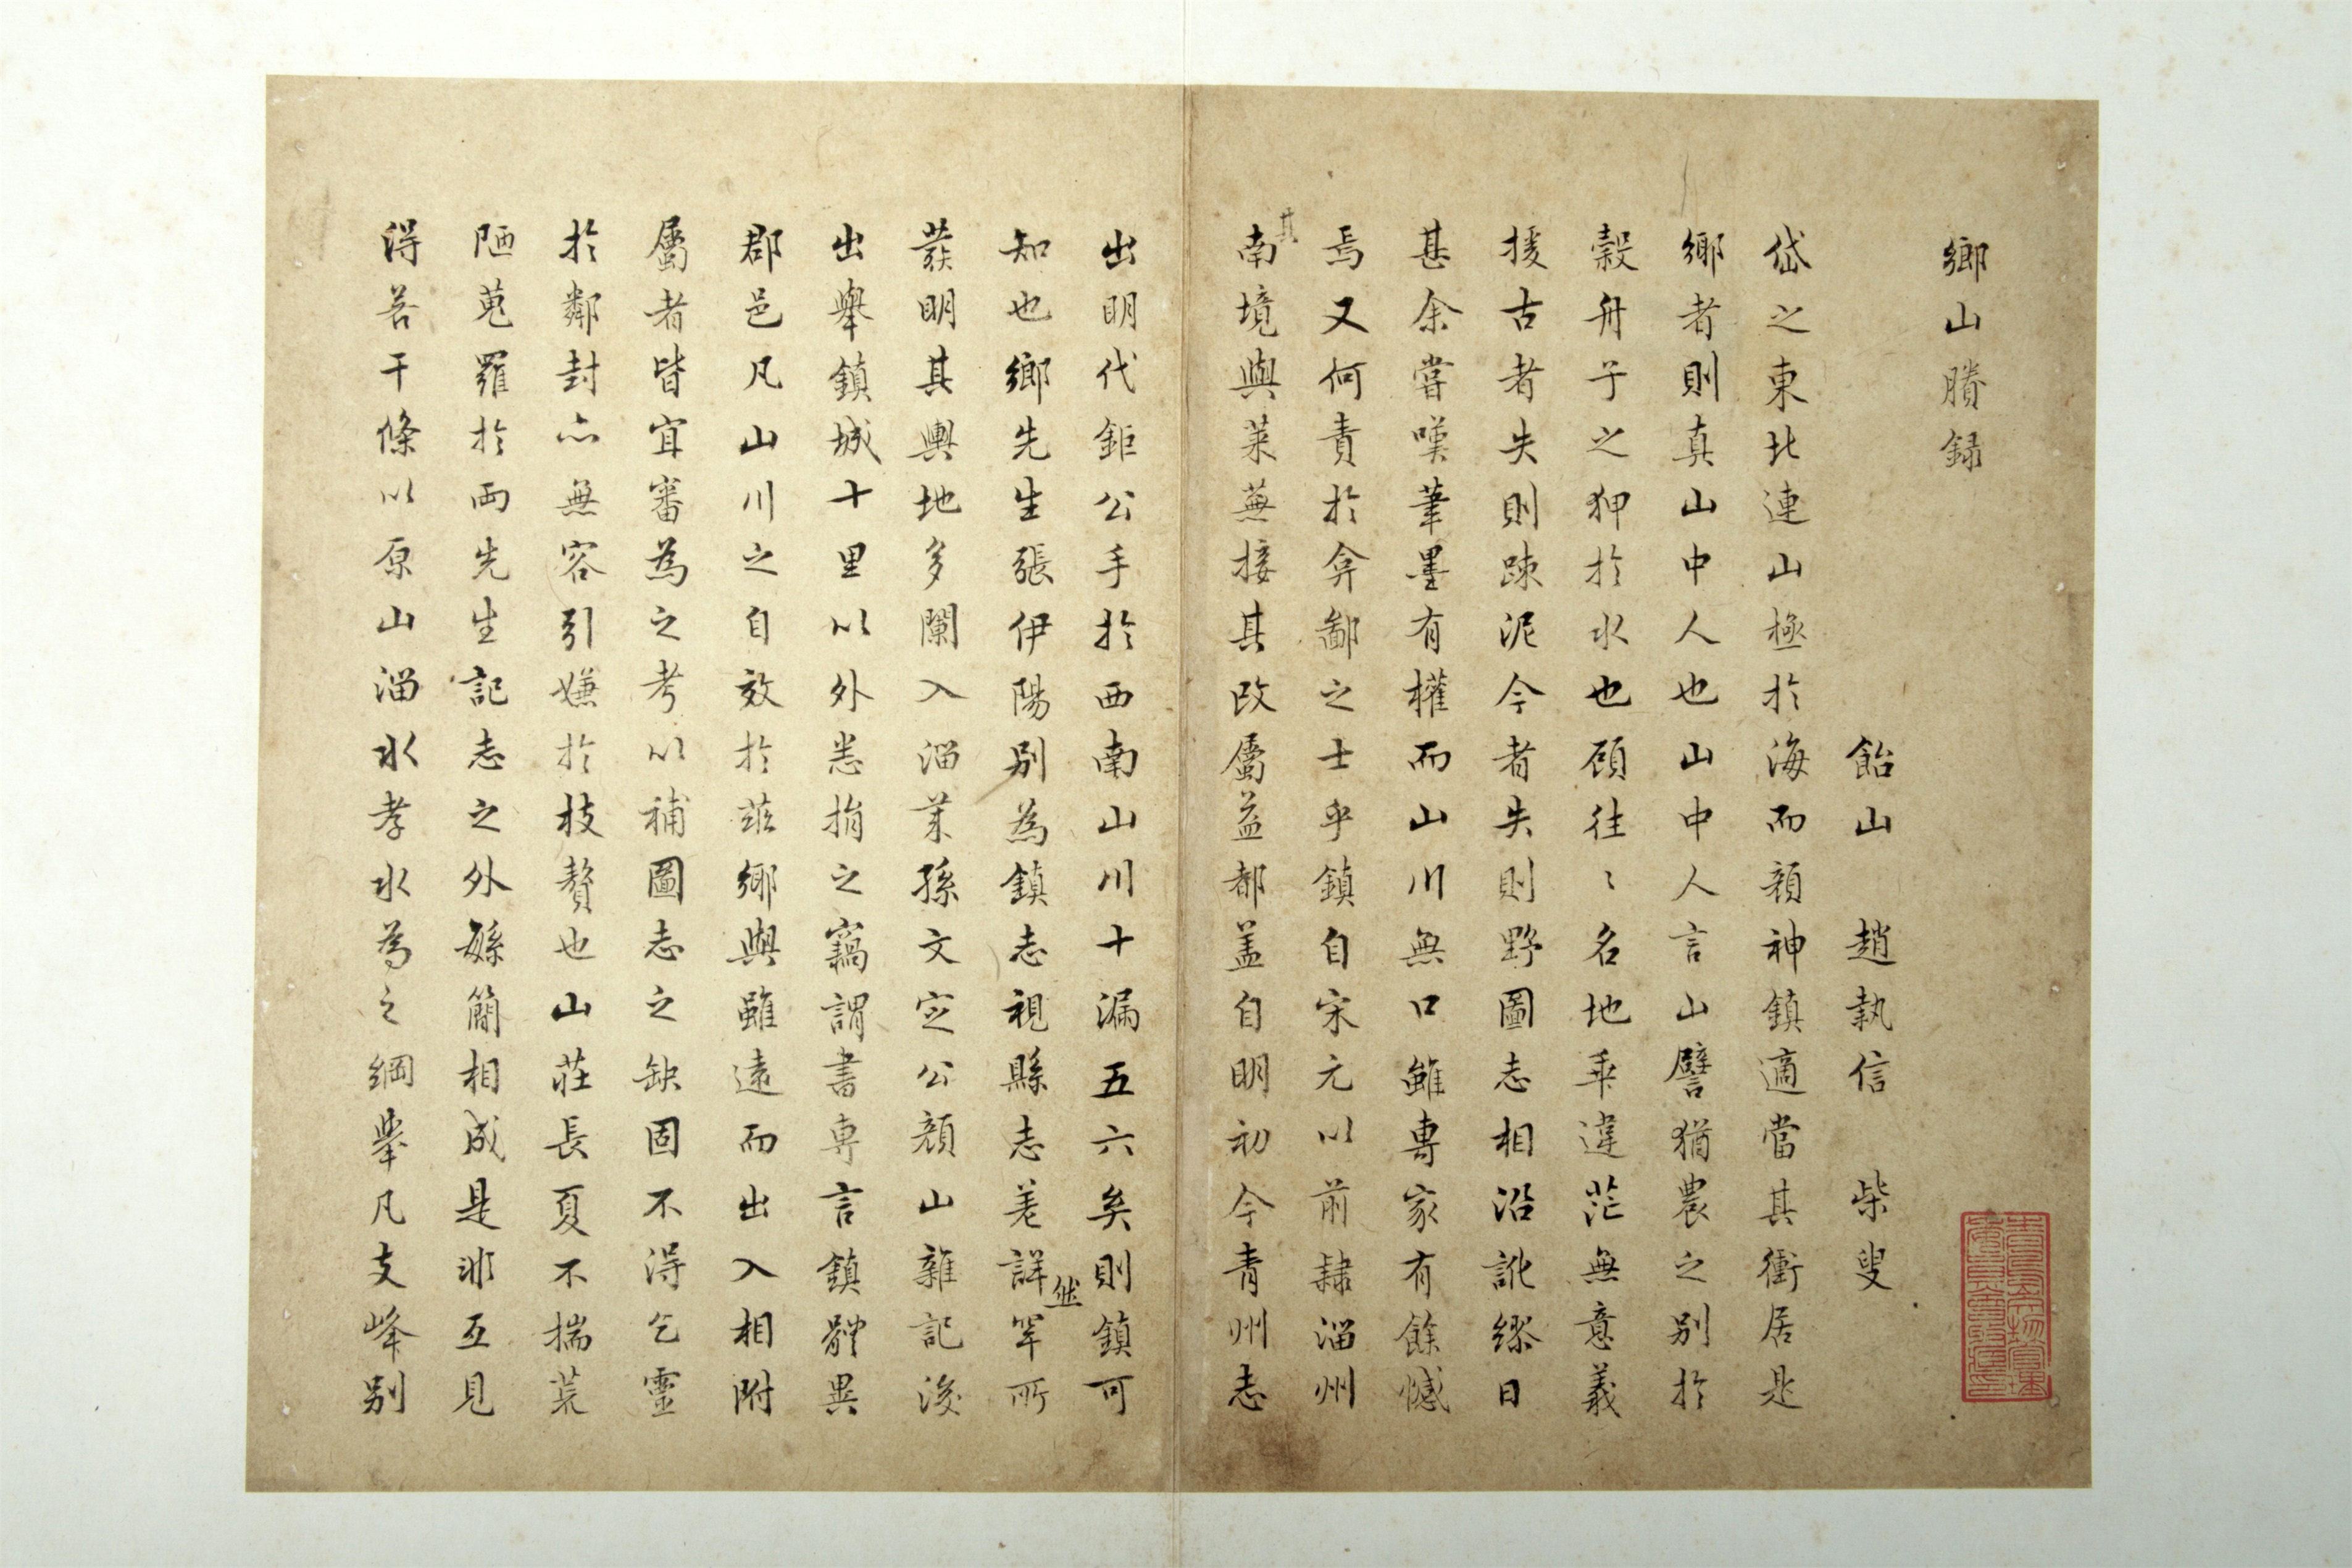 鄉山勝錄
飴山 趙執信 柴叟
岱之東北連山極於海而顏神鎮適當其衝居是
鄉者則真山中人也山中人言山譬猶農之別於
穀舟子之狎於水也顧往〻名地乖違茫無意義
援古者失則踈泥今者失則野圖志相沿訛繆日
甚余嘗嘆筆墨有權而山川無口雖專家有餘憾
焉又何責於弇鄙之士乎鎮自宋元以前隸淄州
其南境與萊蕪接其改屬益都蓋自明初今青州志
出明代鉅公手於西南山川十漏五六矣則鎮可
知也鄉先生張伊陽別為鎮志視縣志差詳然罕所
發明其輿地多闌入淄萊孫文定公顏山雜記後
出舉鎮城十里以外悉捐之竊謂書專言鎮體異
郡邑凡山川之自效於茲鄉與雖遠而出入相附
屬者皆宜審為之考以補圖志之缺固不得乞靈
於鄰封亦無容引嫌於枝贅也山莊長夏不揣荒
陋蒐羅於兩先生記志之外繇簡相成是非互見
得若干條以原山淄水孝水為之綱舉凡支峰別